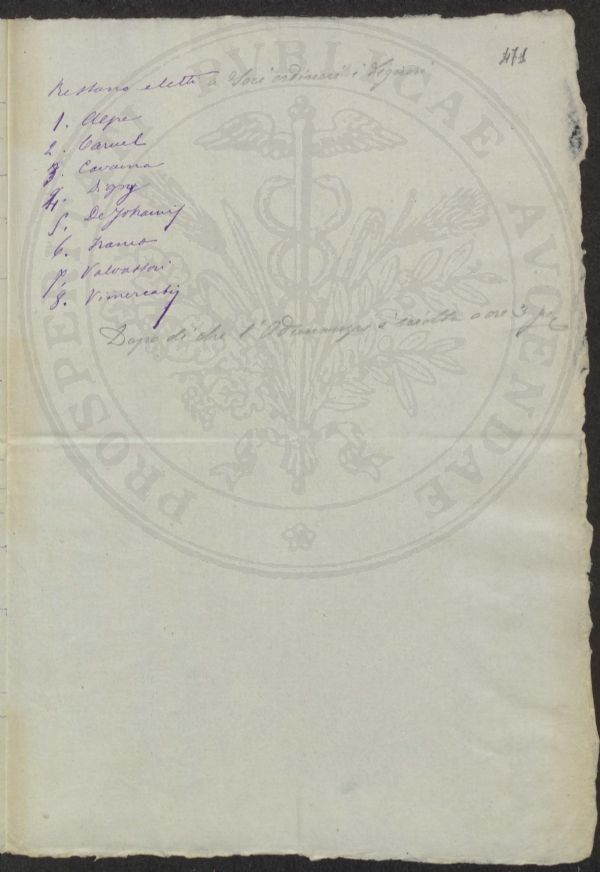 471
Restano eletti a Soci ordinari i Signori
1. Alpe
2. Caruel
3. Cavanna
4.
5. De Johannis
6. Franco
7. Valvassori
8. Vimercati
Dopo di che l'Adunanza è sciolta a ore 3 poz
PROSPERITATI PVBLICAE AVGENDAE